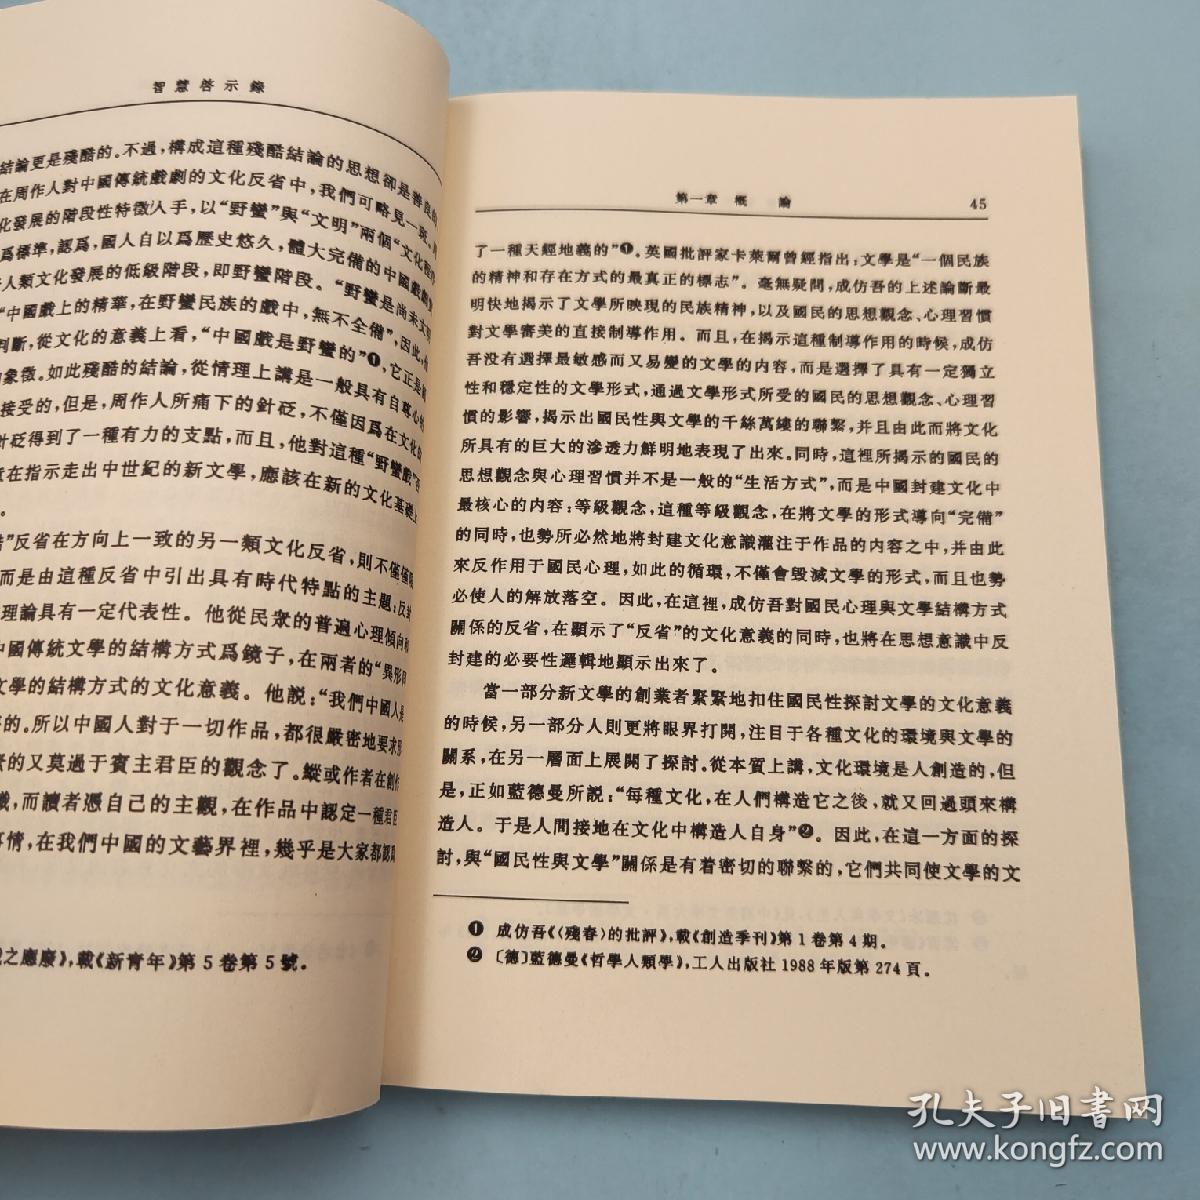 智慧啓示錄
結論更是殘酷的。不過,構成這種殘酷結論的思想卻是善良的
在周作人對中國傳統戲劇的文化反省中,我們可略見一斑。
化發展的階段性特徵入手,以“野蠻”與“文明”兩個“文化程序
爲標準,認爲,國人自以爲歷史悠久,體大完備的中國戲劇
人類文化發展的低級階段,即野蠻階段。“野蠻是尚未文明
“中國戲上的精華,在野蠻民族的戲中,無不全備”,因此,
判斷,從文化的意義上看,“中國戲是野蠻的”❶,它正是
象徵。如此殘酷的結論,從情理上講是一般具有自尊心
接受的,但是,周作人所痛下的針砭,不僅因爲在文化的
針砭得到了一種有力的支點,而且,他對這種“野蠻戲”否
在指示走出中世紀的新文學,應該在新的文化基礎上
。
”反省在方向上一致的另一類文化反省,則不僅僅
而是由這種反省中引出具有時代特點的主題:反封
理論具有一定代表性。他從民衆的普遍心理傾向
中國傳統文學的結構方式爲鏡子,在兩者的“異形同
文學的結構方式的文化意義。他説:“我們中國人是
的。所以中國人對于一切作品,都很嚴密地要求
的又莫過于賓主君臣的觀念了。縱或作者在創作
識,而讀者憑自己的主觀,在作品中認定一種君臣
事情,在我們中國的文藝界裡,幾乎是大家都認
之應廢》,載《新青年》第5卷第5號。
第一章 概 論 45
了一種天經地義的”❶。英國批評家卡萊爾曾經指出:文學是“一個民族
的精神和存在方式的最真正的標志”。毫無疑問,成仿吾的上述論斷最
明快地揭示了文學所映現的民族精神,以及國民的思想觀念、心理習慣
對文學審美的直接制導作用。而且,在揭示這種制導作用的時候,成仿
吾没有選擇最敏感而又易變的文學的内容,而是選擇了具有一定獨立
性和穩定性的文學形式,通過文學形式所受的國民的思想觀念、心理習
慣的影響,揭示出國民性與文學的千絲萬縷的聯繫,并且由此而將文化
所具有的巨大的滲透力鮮明地表現了出來。同時,這裡所揭示的國民的
思想觀念與心理習慣并不是一般的“生活方式”,而是中國封建文化中
最核心的内容:等級觀念,這種等級觀念,在將文學的形式導向“完備”
的同時,也勢所必然地將封建文化意識灌注于作品的内容之中,并由此
來反作用于國民心理,如此的循環,不僅會毁滅文學的形式,而且也勢
必使人的解放落空。因此,在這裡,成仿吾對國民心理與文學結構方式
關係的反省,在顯示了“反省”的文化意義的同時,也將在思想意識中反
封建的必要性邏輯地顯示出來了。
當一部分新文學的創業者緊緊地扣住國民性探討文學的文化意義
的時候,另一部分人則更將眼界打開,注目于各種文化的環境與文學的
關系,在另一層面上展開了探討。從本質上講,文化環境是人創造的,但
是,正如藍德曼所説:“每種文化,在人們構造它之後,就又回過頭來構
造人。于是人間接地在文化中構造人自身”❷。因此,在這一方面的探
討,與“國民性與文學”關係是有着密切的聯繫的,它們共同使文學的文
❶ 成仿吾《〈殘春〉的批評》,載《創造季刊》第1卷第4期。
❷ 〔德〕藍德曼《哲學人類學》,工人出版社1988年版第274頁。
孔夫子旧書网
www.kongfz.com